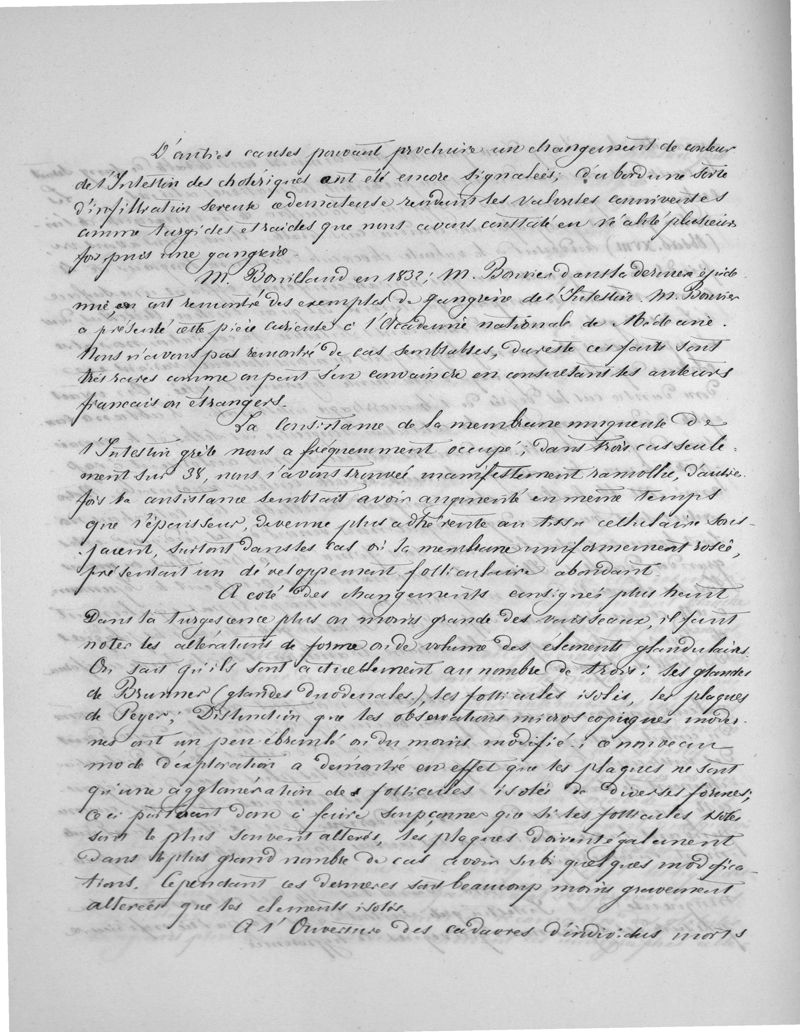 D'autres causes pouvant produire un changement de couleur
de l'Intestin des cholériques ont été encore signalées; d'abord une sorte
d'infiltration sereuse oedemateuse rendant les valvules conniventes
comme turgides et raides que nous avons constaté en réalité plusieurs
fois puis une gangrène
M. Bouillaud en 1832; M. Bouvier dans la derniere épidé-
mie, en ont rencontré des exemples de gangrène de l'Intestin. M. Bouvier
a présenté cette pièce curieuse à l'Académie nationale de Médecine.
Nous n'avons pas rencontré de cas semblables, du reste ces faits sont
très rares comme on peut s'en convaincre en consultant les auteurs
français ou étrangers.
La Consistance de la membrane muqueuse de
l'Intestin grêle nous a fréquemment occupé; dans trois cas seule-
ment sur 38, nous l'avons trouvée manifestement ramollie, d'autre
fois la consistance semblait avoir augmenté en même temps
que l'épaisseur, devenue plus adhérente au tissu cellulaire sous-
jacent, surtout dans les cas où la membrane uniformement rosée,
présentait un développement folliculaire abondant.
A coté des changements consignés plus haut
dans la turgescence plus ou moins grande des vaisseaux, il faut
noter les altérations de forme ou de volume des éléments glandulaires.
On sait qu'ils sont actuellement au nombre de trois: les glandes
de Brunner (glandes duodenales), les follicules isolés, les plaques
de Peyer; Distinction que les observations microscopiques moder-
nes ont un peu ébranlé ou du moins modifié; ce nouveau
mode d'exploration a démontré en effet que les plaques ne sont
qu'une agglomération de follicules isolés de diverses formes;
Ceci porterait donc à faire soupçonner que si les follicules isolés
sont le plus souvent altérés, les plaques doivent également
dans le plus grand nombre de cas avoir subi quelques modifica-
tions. Cependant ces dernieres sont beaucoup moins gravement
alterées que les elements isolés.
A l'Ouverture des cadavres d'individus morts